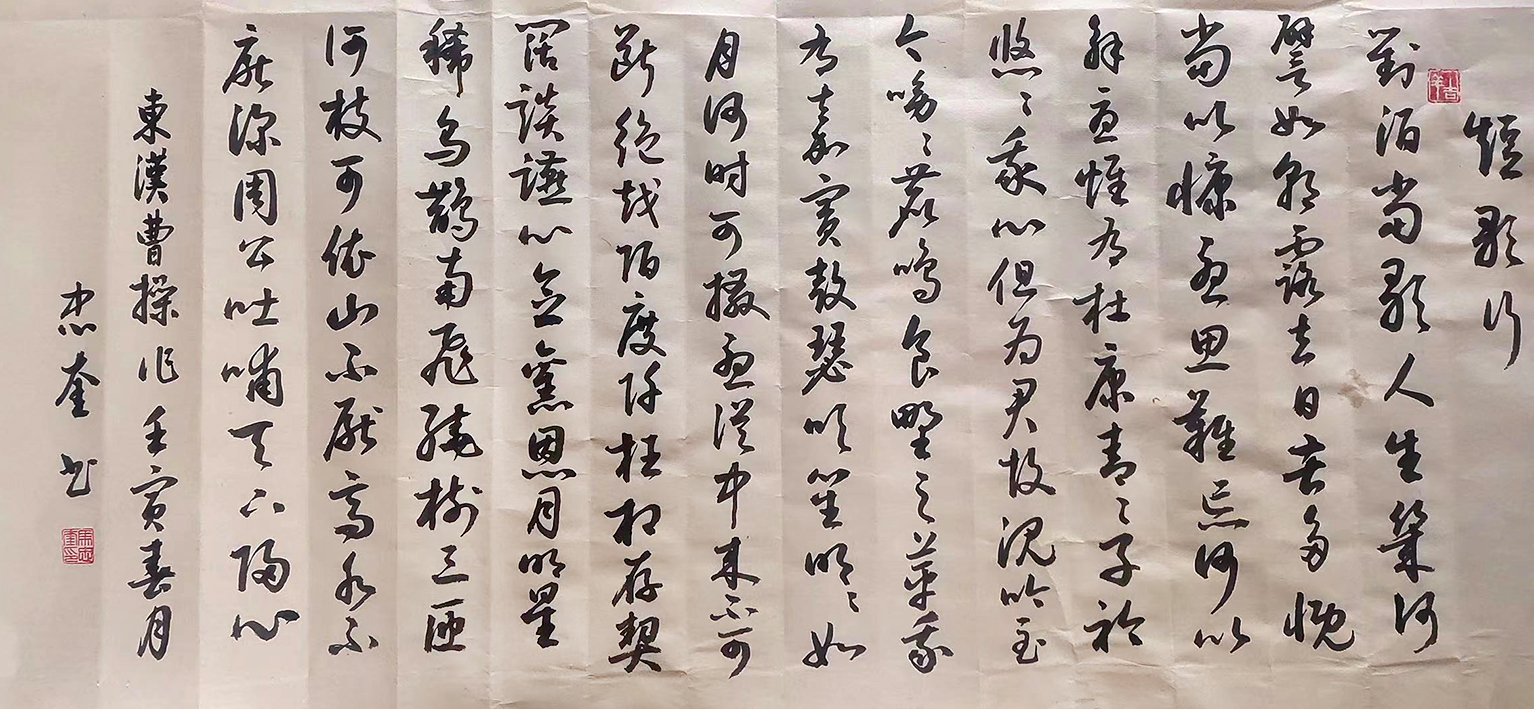 短歌行
對酒當歌人生幾何
譬如朝露去日苦多慨
當以慷憂思難忘何以
解憂惟有杜康青〻子衿
悠〻我心但為君故沉吟至
今呦〻鹿鳴食野之苹我
有嘉賓鼓瑟吹笙明〻如
月何時可掇憂從中來不可
斷絕越陌度阡枉相存契
闊談讌心念舊恩月明星
稀烏鵲南飛繞樹三匝
何枝可依山不厭高水不
厭深周公吐哺天下歸心
東漢曹操作壬寅春月
忠奎书